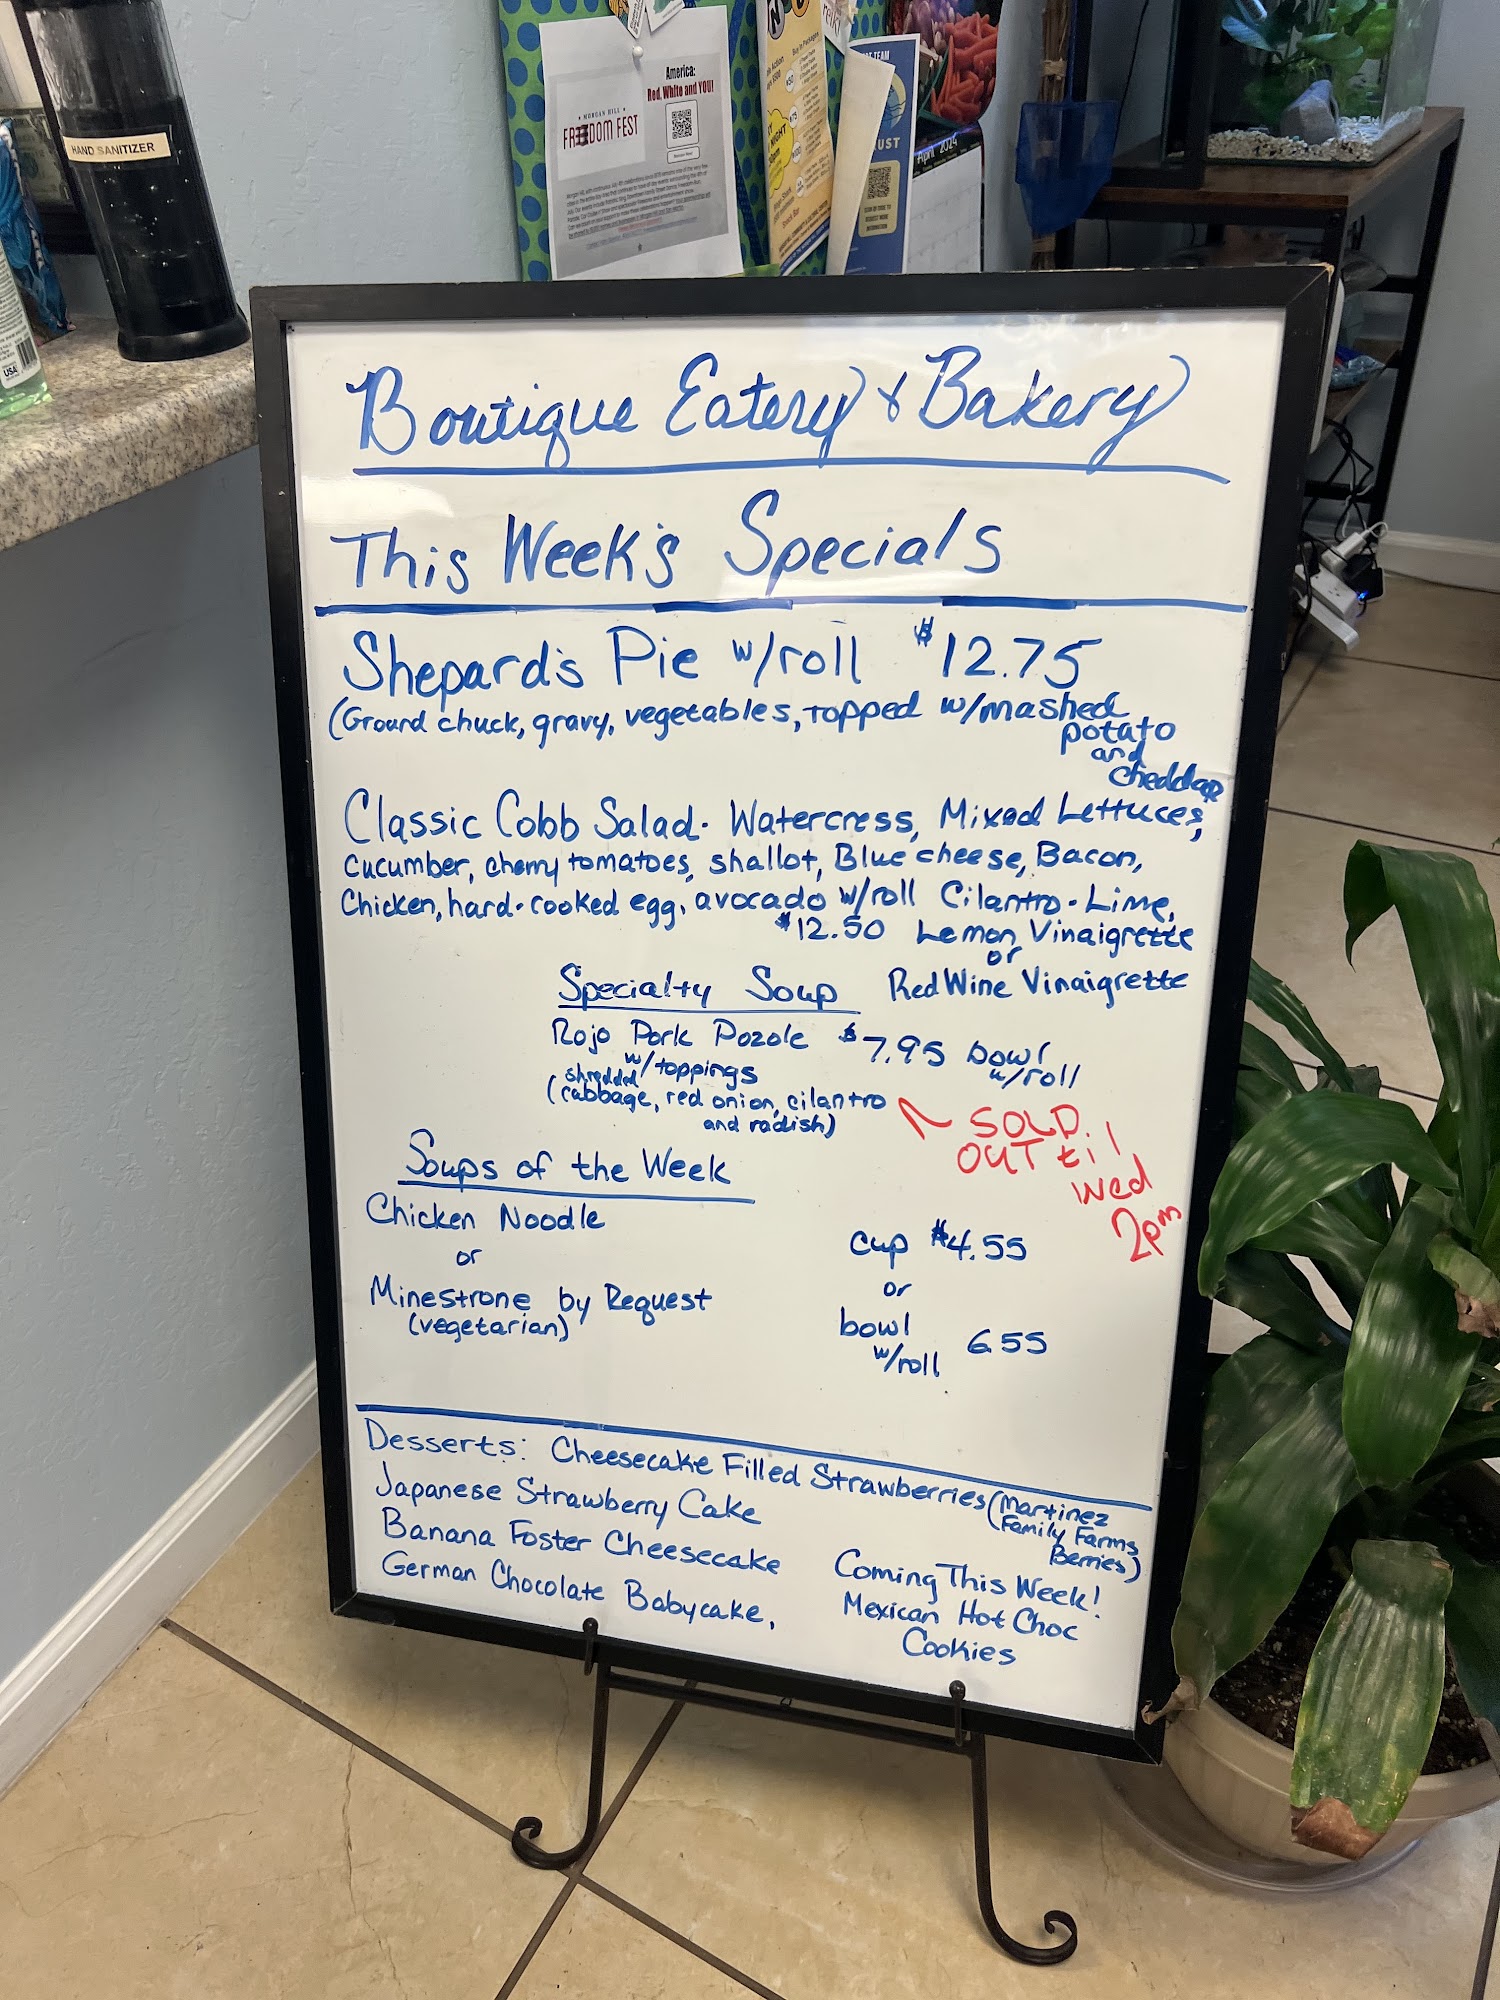 HAND SANITIZER
USA
MORGAN HILL
FREEDOM FEST
America:
Red, White and YOU!
April 2024
Boutique Eatery & Bakery
This Week's Specials
Shepard's Pie w/roll $12.75
(Ground chuck, gravy, vegetables, topped w/mashed
potato
and
cheddar
Classic Cobb Salad. Watercress, Mixed Lettuces,
cucumber, cherry tomatoes, shallot, Blue cheese, Bacon,
Chicken, hard-cooked egg, avocado w/roll Cilantro-Lime,
$12.50 Lemon Vinaigrette
or
Red Wine Vinaigrette
Specialty Soup
Rojo Pork Pozole $7.95 bowl
w/toppings w/roll
shredded
(cabbage, red onion, cilantro
and radish)
SOLD
OUT til
Wed
2pm
Soups of the Week
Chicken Noodle
or
Minestrone by Request
(vegetarian)
cup $4.55
or
bowl 6.55
w/roll
Desserts: Cheesecake Filled Strawberries (Martinez
Family Farms
Berries)
Japanese Strawberry Cake
Banana Foster Cheesecake
German Chocolate Babycake,
Coming This Week!
Mexican Hot Choc
Cookies